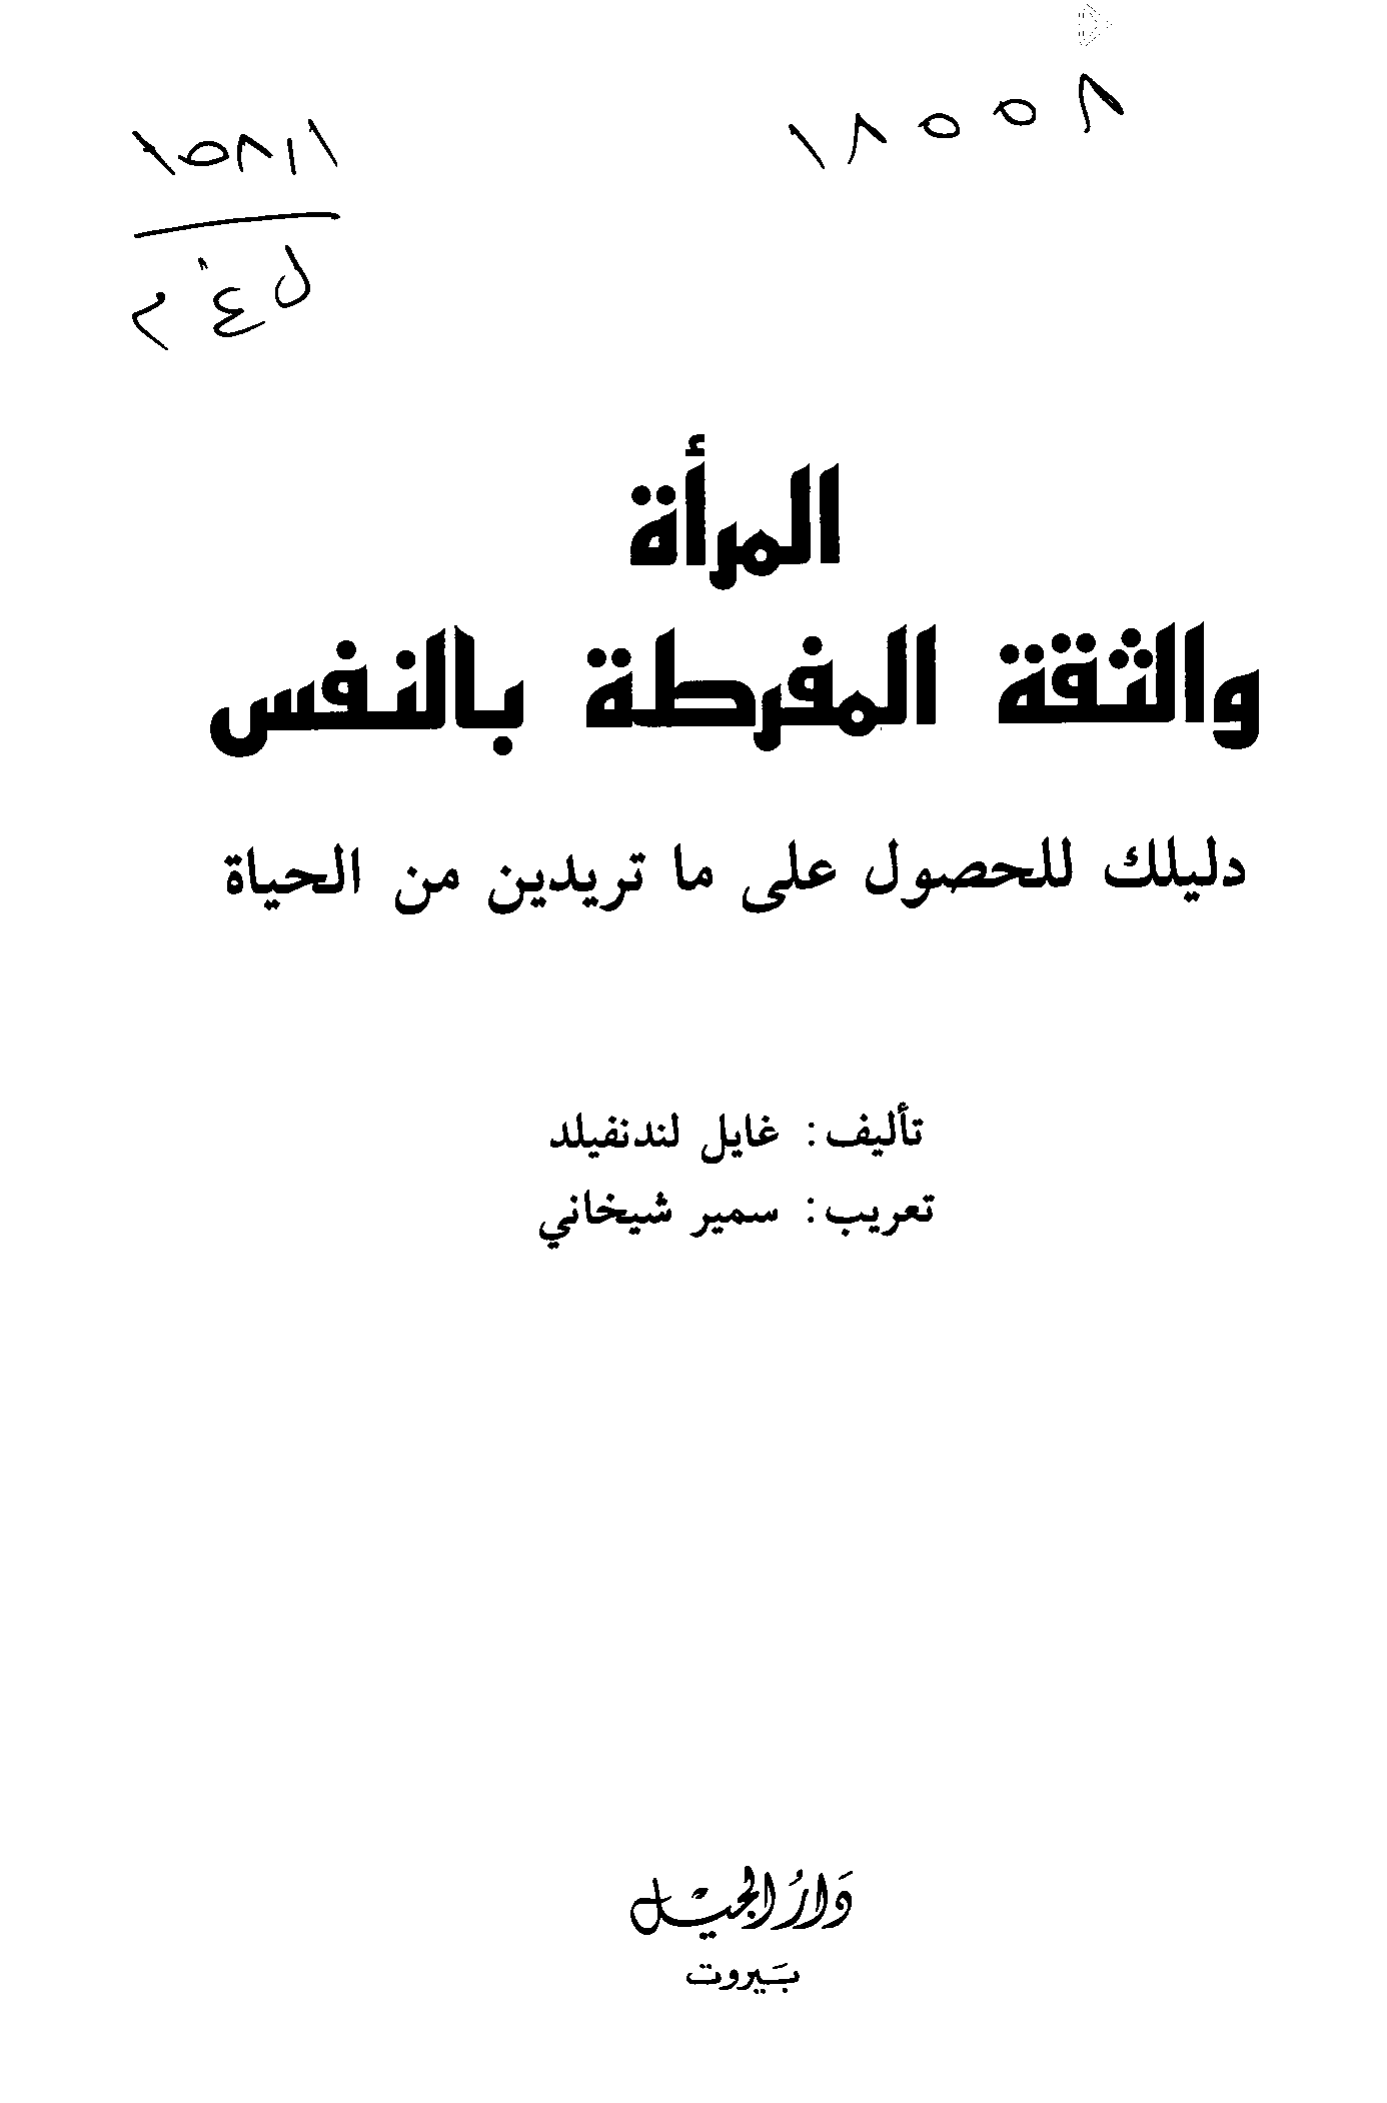 ١٨٥٥٨
١٥٨,١١
ل ع م
المرأة
والثقة المفرطة بالنفس
دليلك للحصول على ما تريدين من الحياة
تأليف: غايل لندنفيلد
تعريب: سمير شيخاني
دَارُ الجيْل
بَيروت